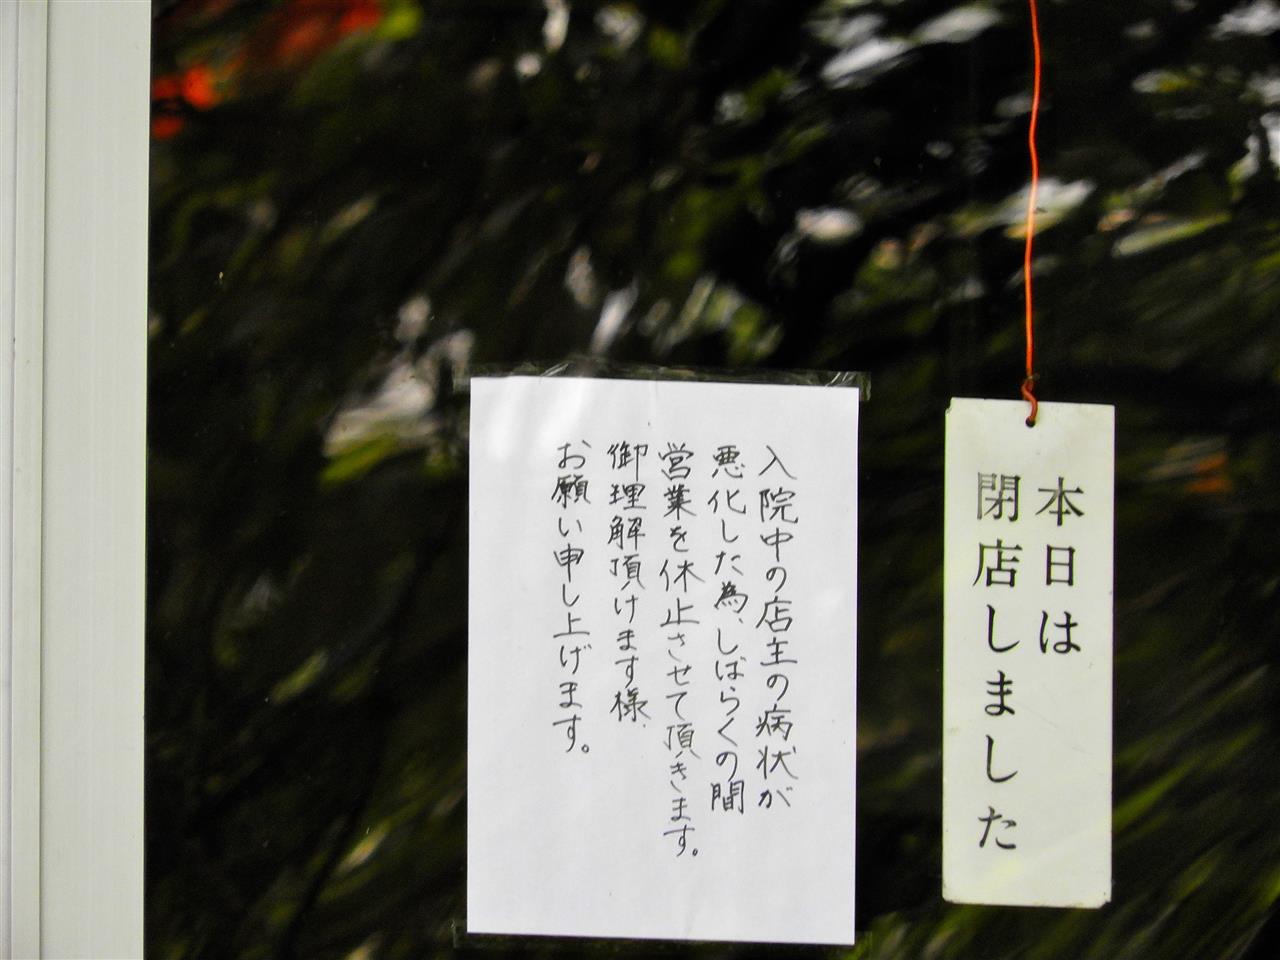 本日は
閉店しました
入院中の店主の病状が
悪化した為、しばらくの間
営業を休止させて頂きます。
御理解頂けます様、
お願い申し上げます。